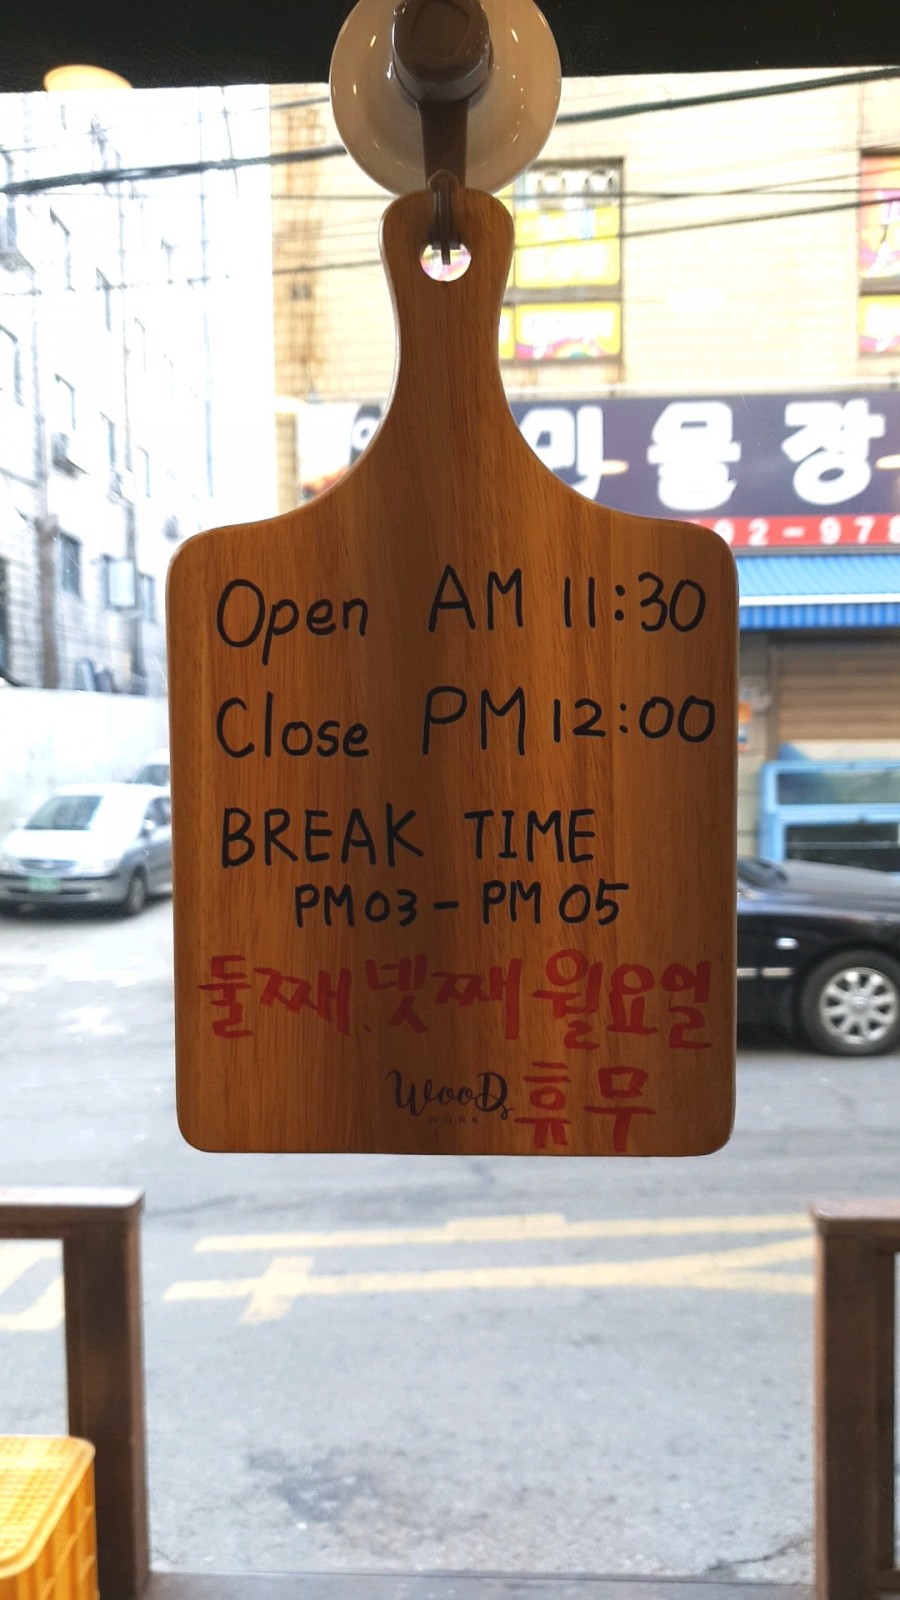 물장
92-978
Open AM 11:30
Close PM 12:00
BREAK TIME
PM 03 - PM 05
둘째.넷째 월요일
휴무
WooDs
WORK